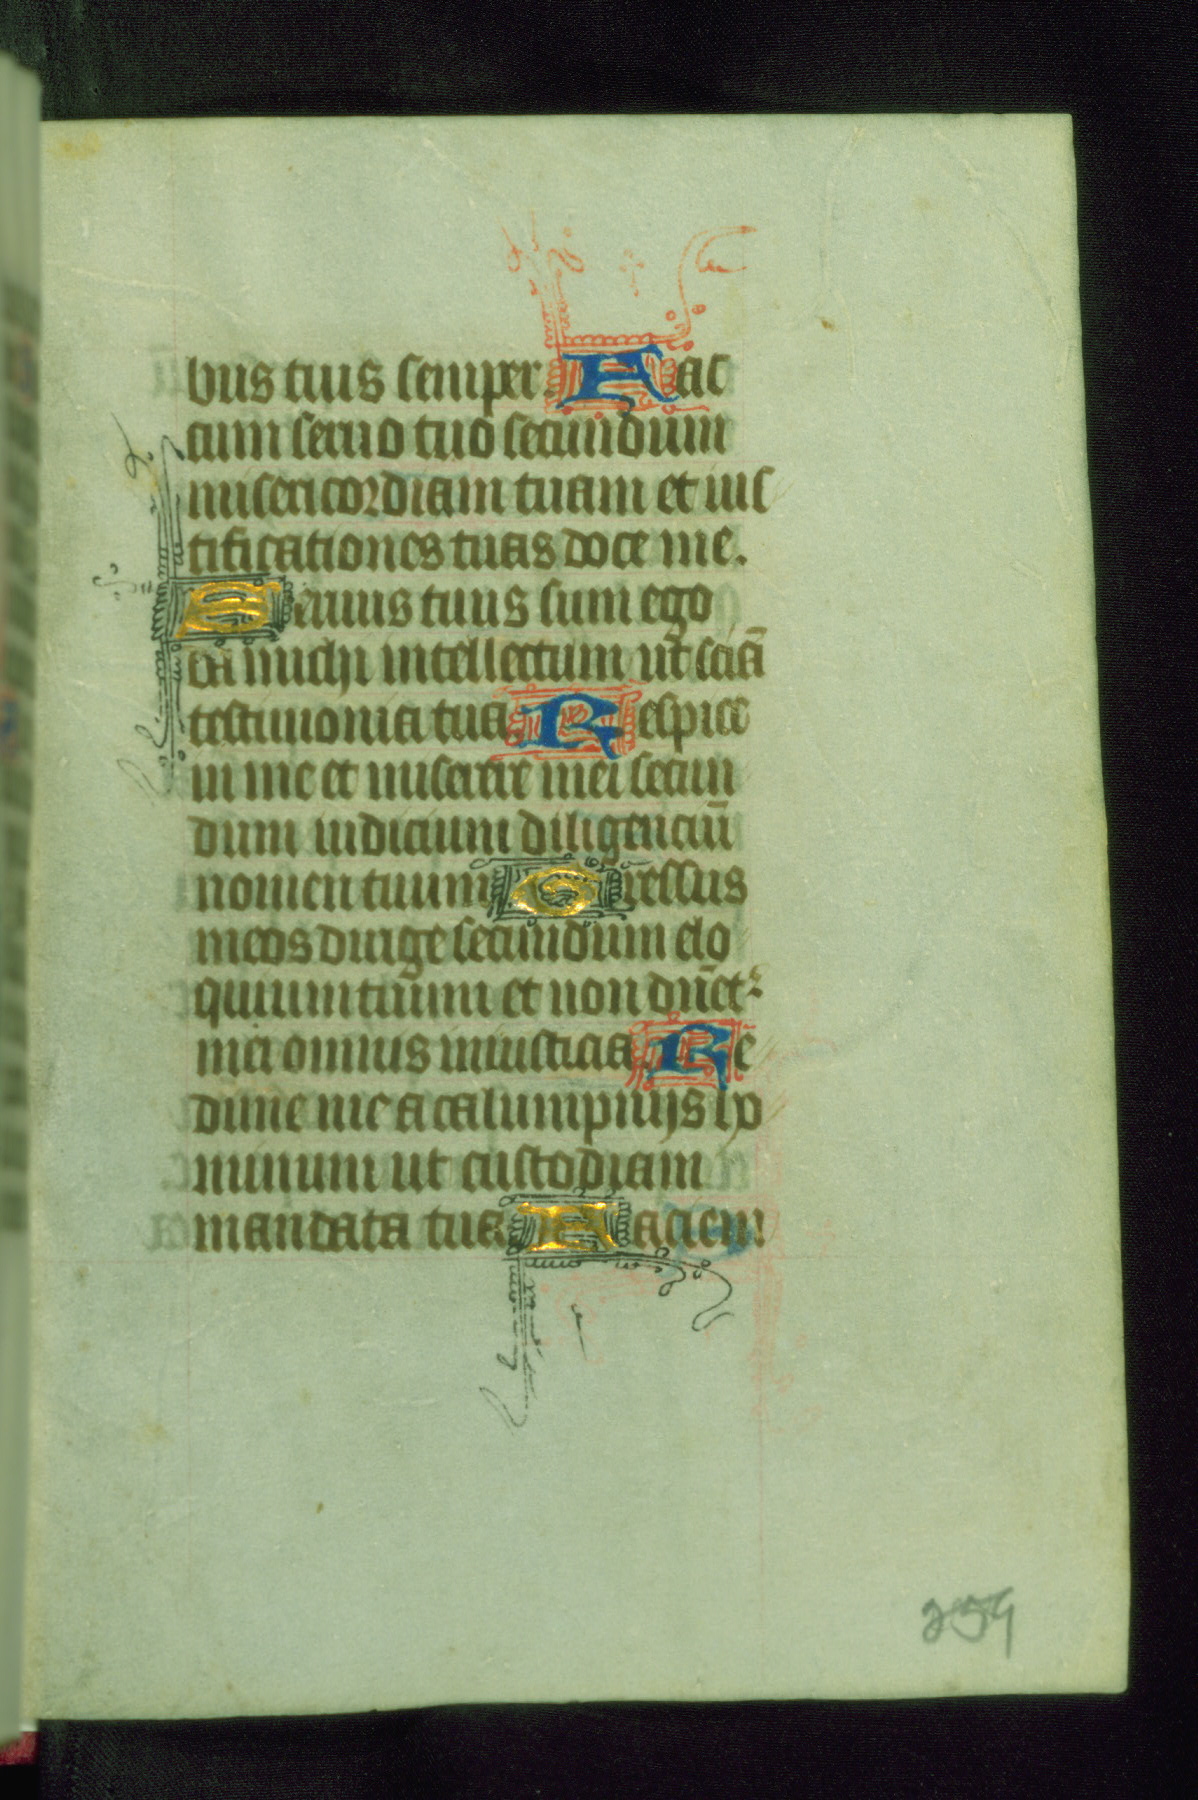 bus tuis semper. Fac
cum seruo tuo secundum
misericordiam tuam et ius
tificationes tuas doce me.
Seruus tuus sum ego
da michi intellectum ut sciā
testimonia tua Respice
in me et miserere mei secun
dum iudicium diligenciū
nomen tuum Gressus
meos dirige secundum elo
quium tuum et non dn̄et᷑
mei omnis iniusticia Re
dime me a calumpnijs ho
minum ut custodiam
mandata tua Faciem
254